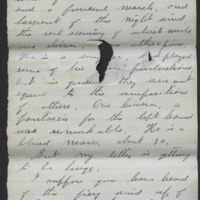 and a funeral march, and
lament of the night wind
the real meaning of which words
are
This is a played
some of his own productions
but in general they are not
equal to the composition
of others. One, however, a
fantasia for the left hand
was remarkable. He is a
blind man, about 30.
But my letter is getting
to be large.
I suppose you have heard
of the fray up of